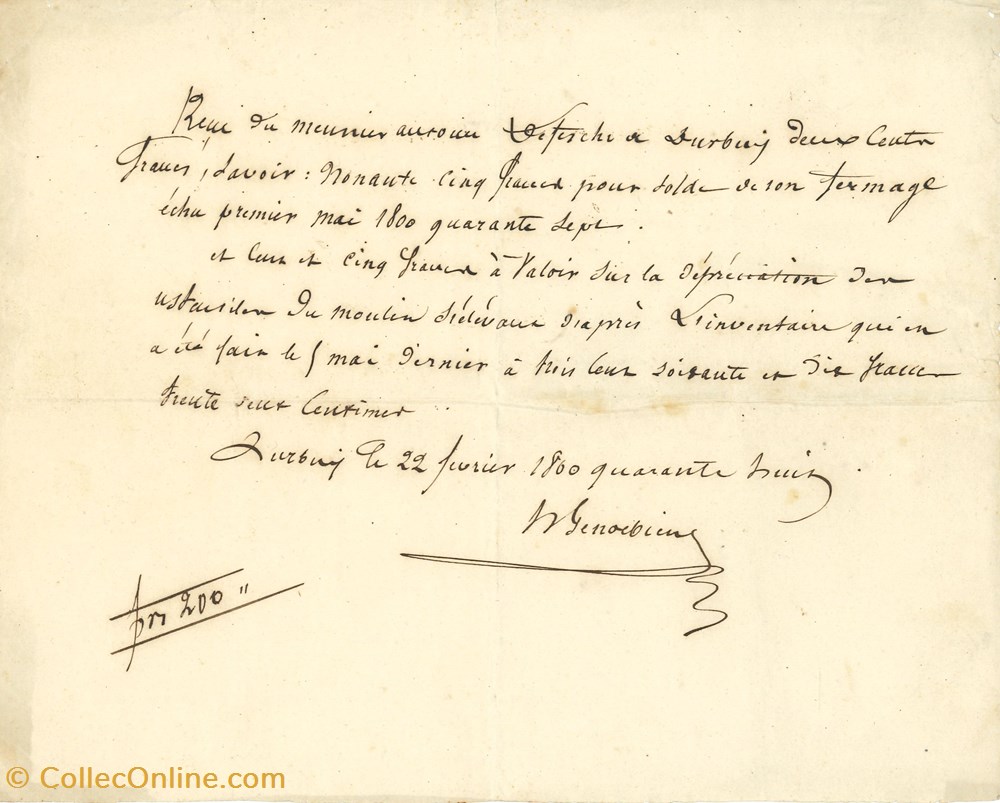 Reçu du meunier Defesche a Durbuy deux Cents
francs, Savoir : Nonante cinq francs pour solde de son fermage
échu premier mai 1800 quarante sept.
et cent et cinq francs à Valoir sur la dépréciation des
ustensiles du moulin s'élévant d'après L'inventaire qui en
a été fait le 5 mai dernier à trois cent soixante et dix francs
trente deux Centimes
Durbuy le 22 fevrier 1800 quarante huit.
pr 200 "
© CollecOnline.com